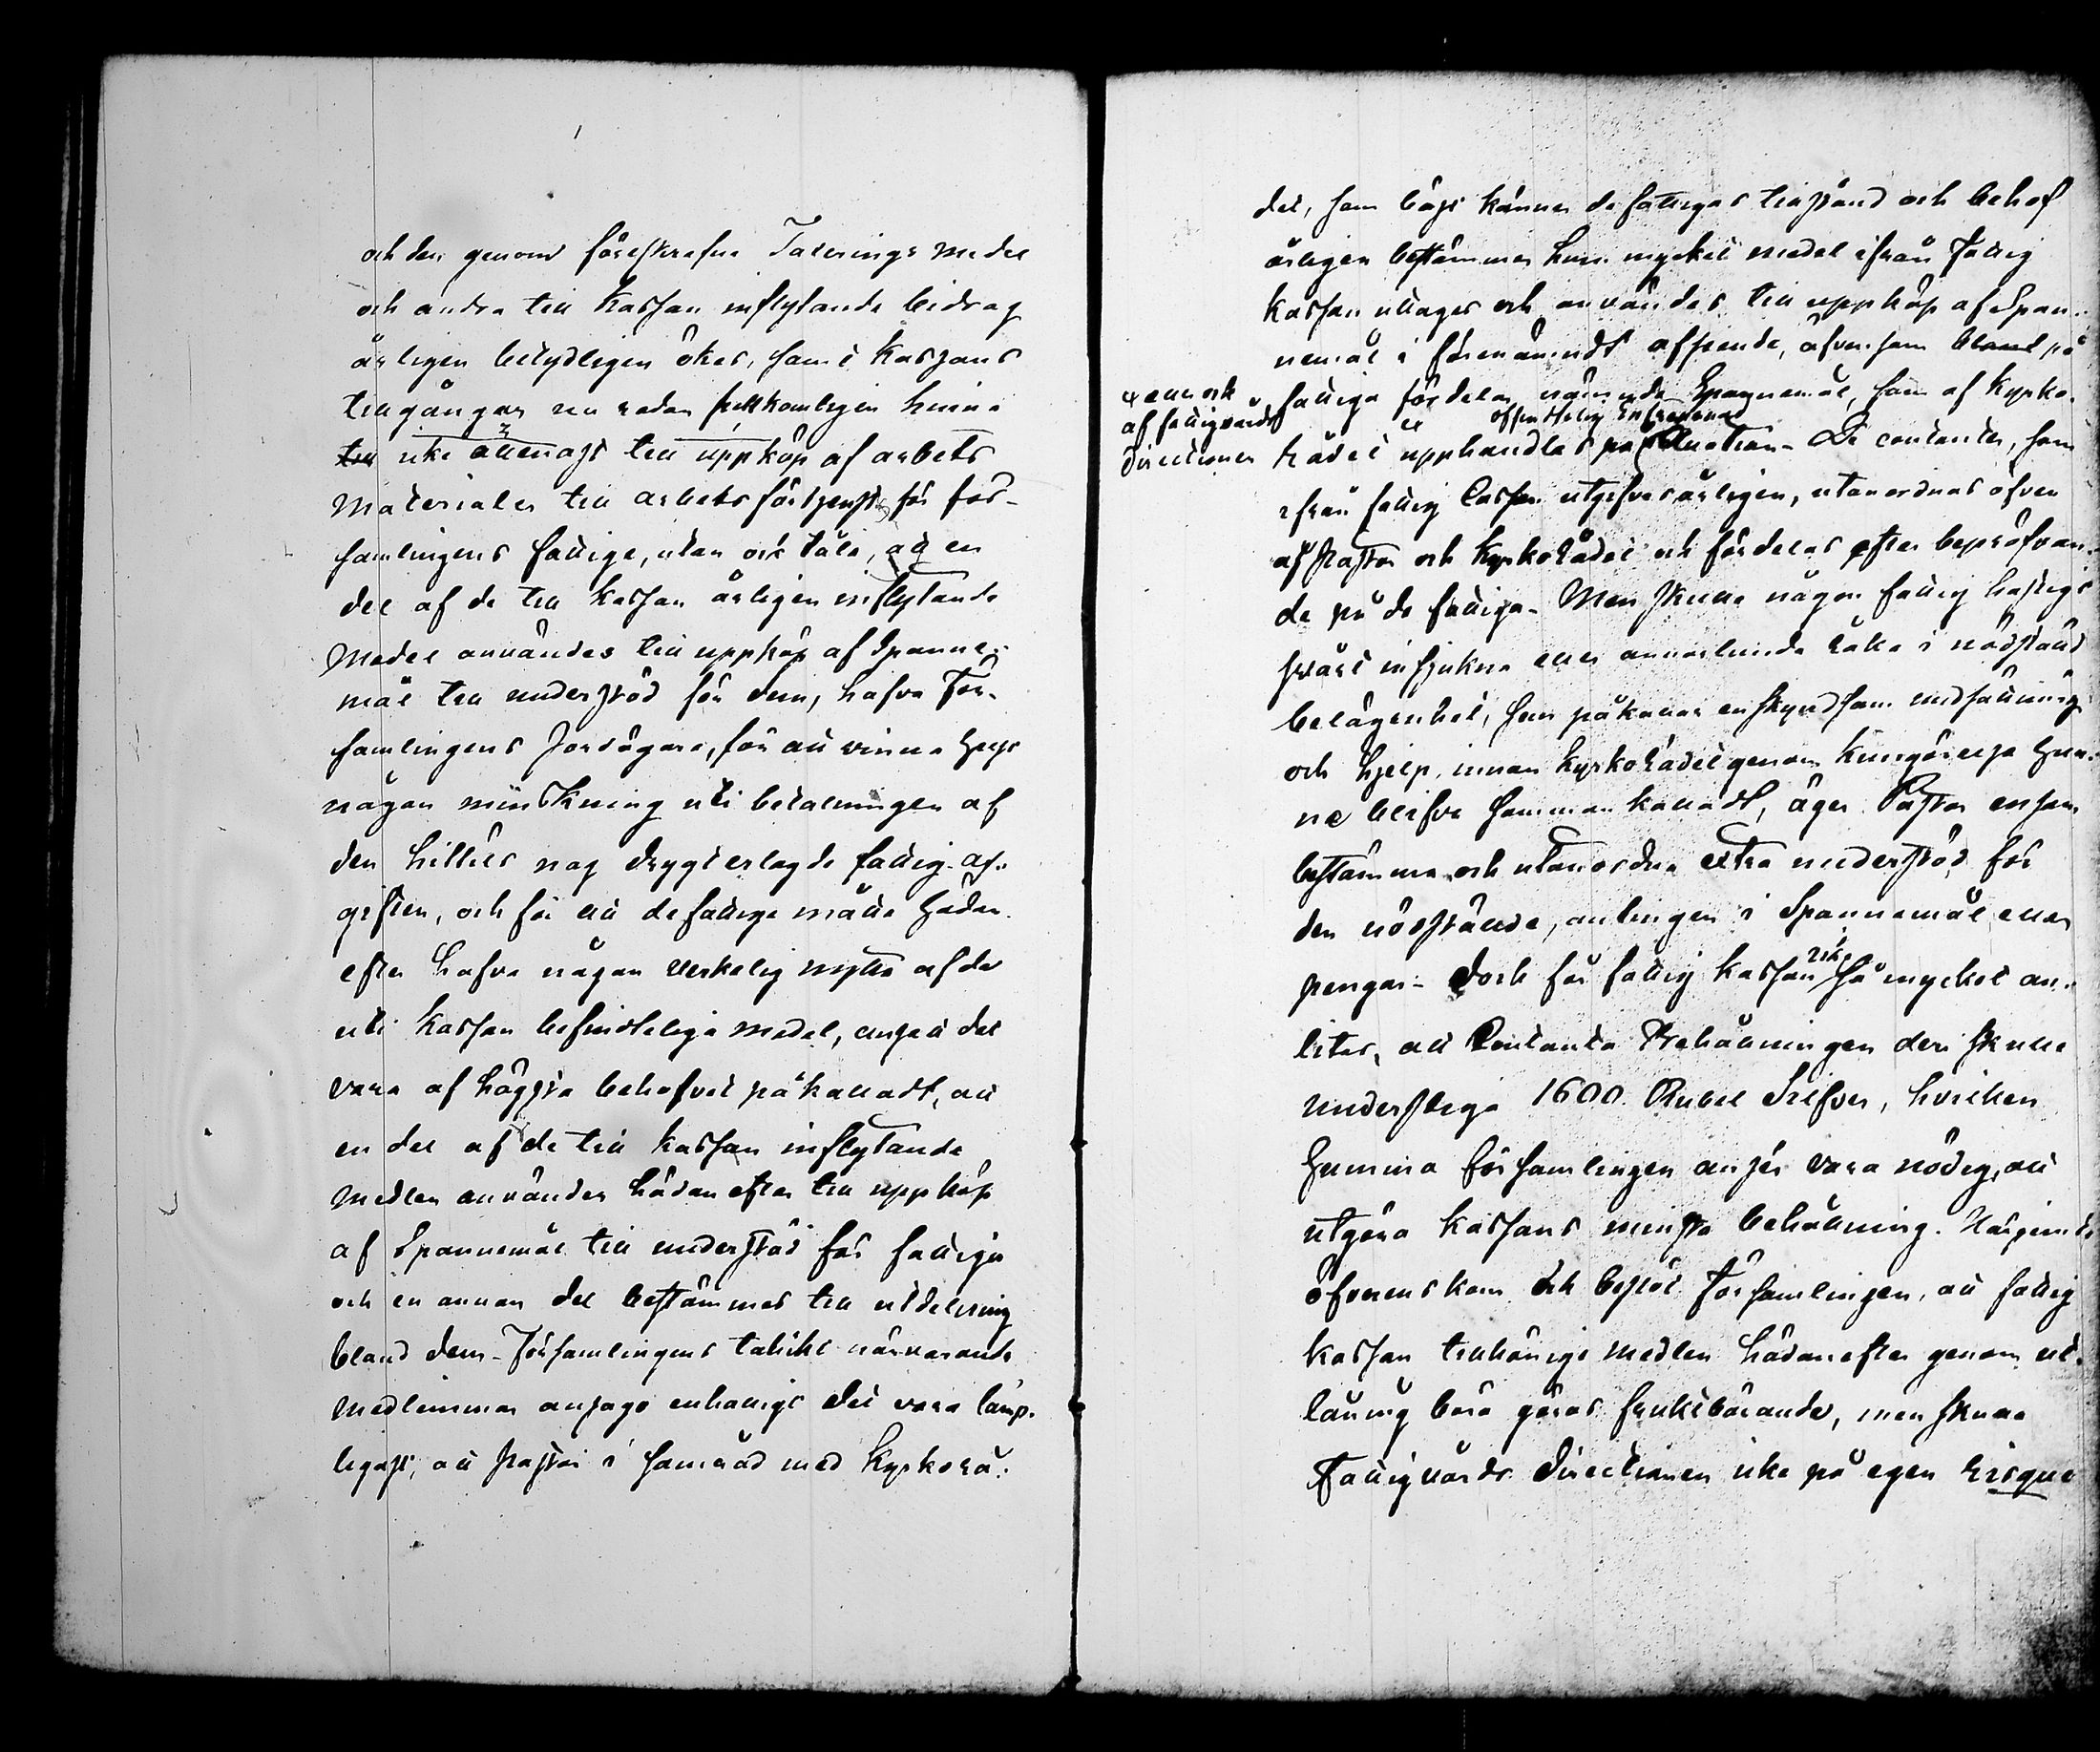 och den genom föreskrefne Taxerings medel
och andra till Kassan inflytande bidrag
årligen betydligen ökes, samt Kassans
tillgångar nu redan fullkomligen hinna
till icke allenast till uppköp af arbets
Materialer till arbets förtjenst för för-
samlingens fattige, utan ock tåla, att en
del af de till Kassan årligen inflytande
Medel användes till uppköp af Spanne-
mål till understöd för dem, hafva För-
samlingens Jordägare, för att vinna
någon minskning uti betalningen af
den hittils nog drygt erlagde fattig af-
giften, och för att de fattige måtte hädan-
efter hafva någon verkelig nytta af de
uti Kassan befindtelige Medel, ansett det
vara af högsta behofvet påkalladt, att
en del af de till Kassan inflytande
medlen användes hädanefter till uppköp
af Spannemål till understöd för fattige
och en annan del bestämmes till utdelning
bland dem. Församlingens talrikt närvarande
Medlemmar ansågo enhälligt det vara lämp-
ligast, att Pastor i samråd med Kyrkorå-
det, som bäst känner de fattigas tillstånd och behof
årligen bestämmer huru mycket medel ifrån Fattig
kassan uttages och användes till uppköp af Span-
nemål i förenämndt afseende, äfvensom bland på
fattiga fördelar nämnde Spannemål, som af Kyrko-
eller ock
af fattigvårds
directionen
offentelig entreprenad
rådet upphandlas på Auction. De contanter, som
ifrån fattig Cassan utgifves årligen, utanordnas äfven
af Pastor och Kyrkorådet och fördelas efter bepröfvan-
de på de fattiga. Men skulle någon fattig hastigt
svårt insjukna eller annorlunda råka i nödstäld
belägenhet, som påkallar en skyndsam undsättning
och hjelp, innan Kyrkorådet genom kungörelse hun-
ne blifva sammankalladt, äger Pastor ensam
bestämma och utanordna extra understöd för
den nödstälde, antingen i Spannemål eller
pengar. Dock får fattig Kassan icke så mycket an-
litas, att Contanta Behållningen deri skulle
understiga 1600 Rubel Silfver, hvilken
Summa församlingen anser vara nödig, att
utgöra Kassans minsta behållning. Härjemte
öfverenskom och beslöt Församlingen, att fattig
kassan tillhörige medlen hädanefter genom ut-
låning böra göras fruktbärande, men skulle
Fattigvårds Directionen icke på egen risque